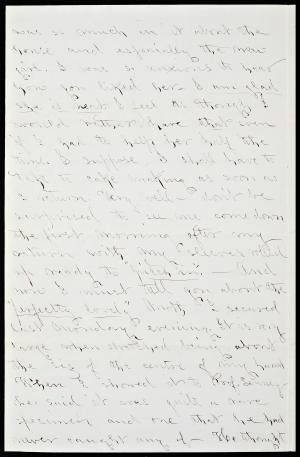 was so much in it about the
house and especially the new
girl. I was so anxious to hear
how you liked her. I am glad
she is neat. I feel as though I
would rather have that even
if I had to help her half the
time. I suppose I shall have to
take to cake making as soon as
I return. Very well — don't be
surprised to see me come down
the first morning after my
return with my sleeves rolled
up ready to "pitch in". — And
now I must tell you about the
"perfectly lovely" moth I secured
last Monday evening. It is very
large when stretched being about
the size of the centre of my hand
When I showed it to Prof.
he said it was quite a rare
specimen and one that he had
never caught any of — He thought